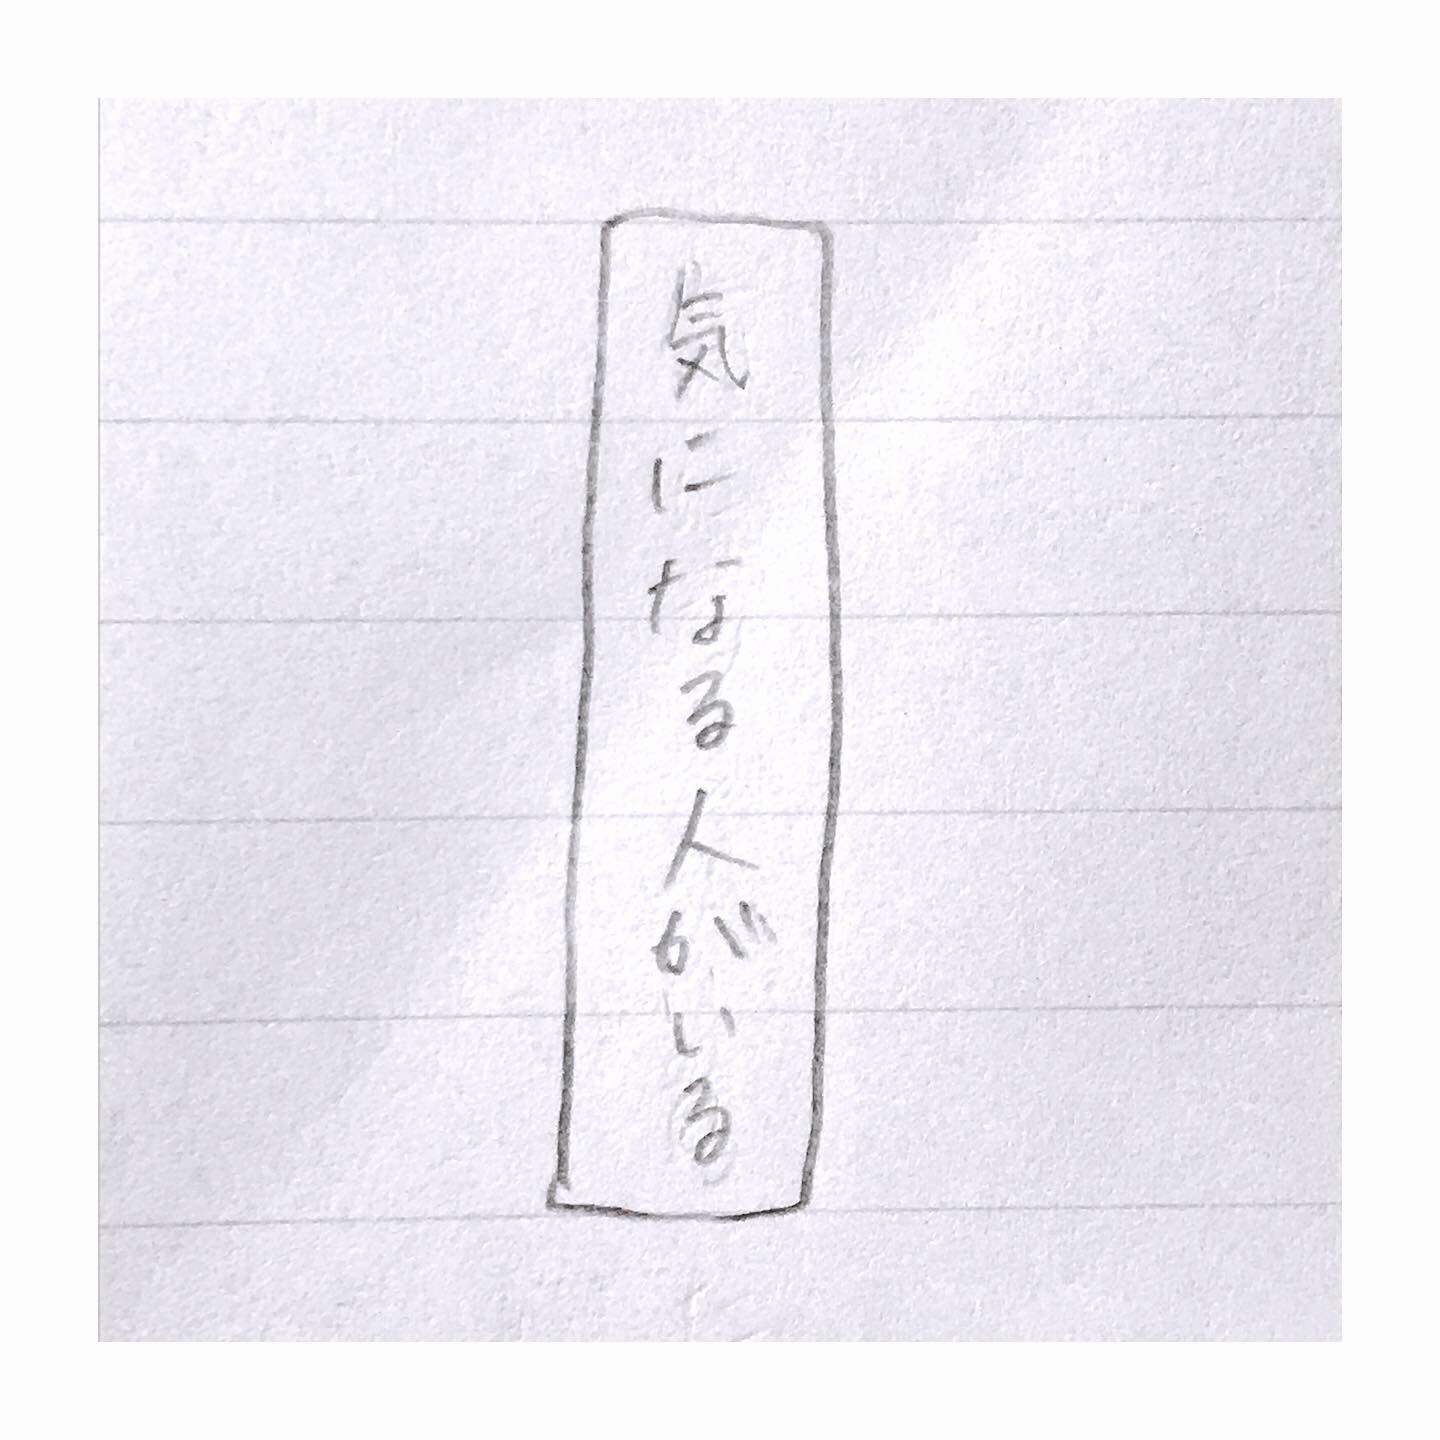 気になる人がいる